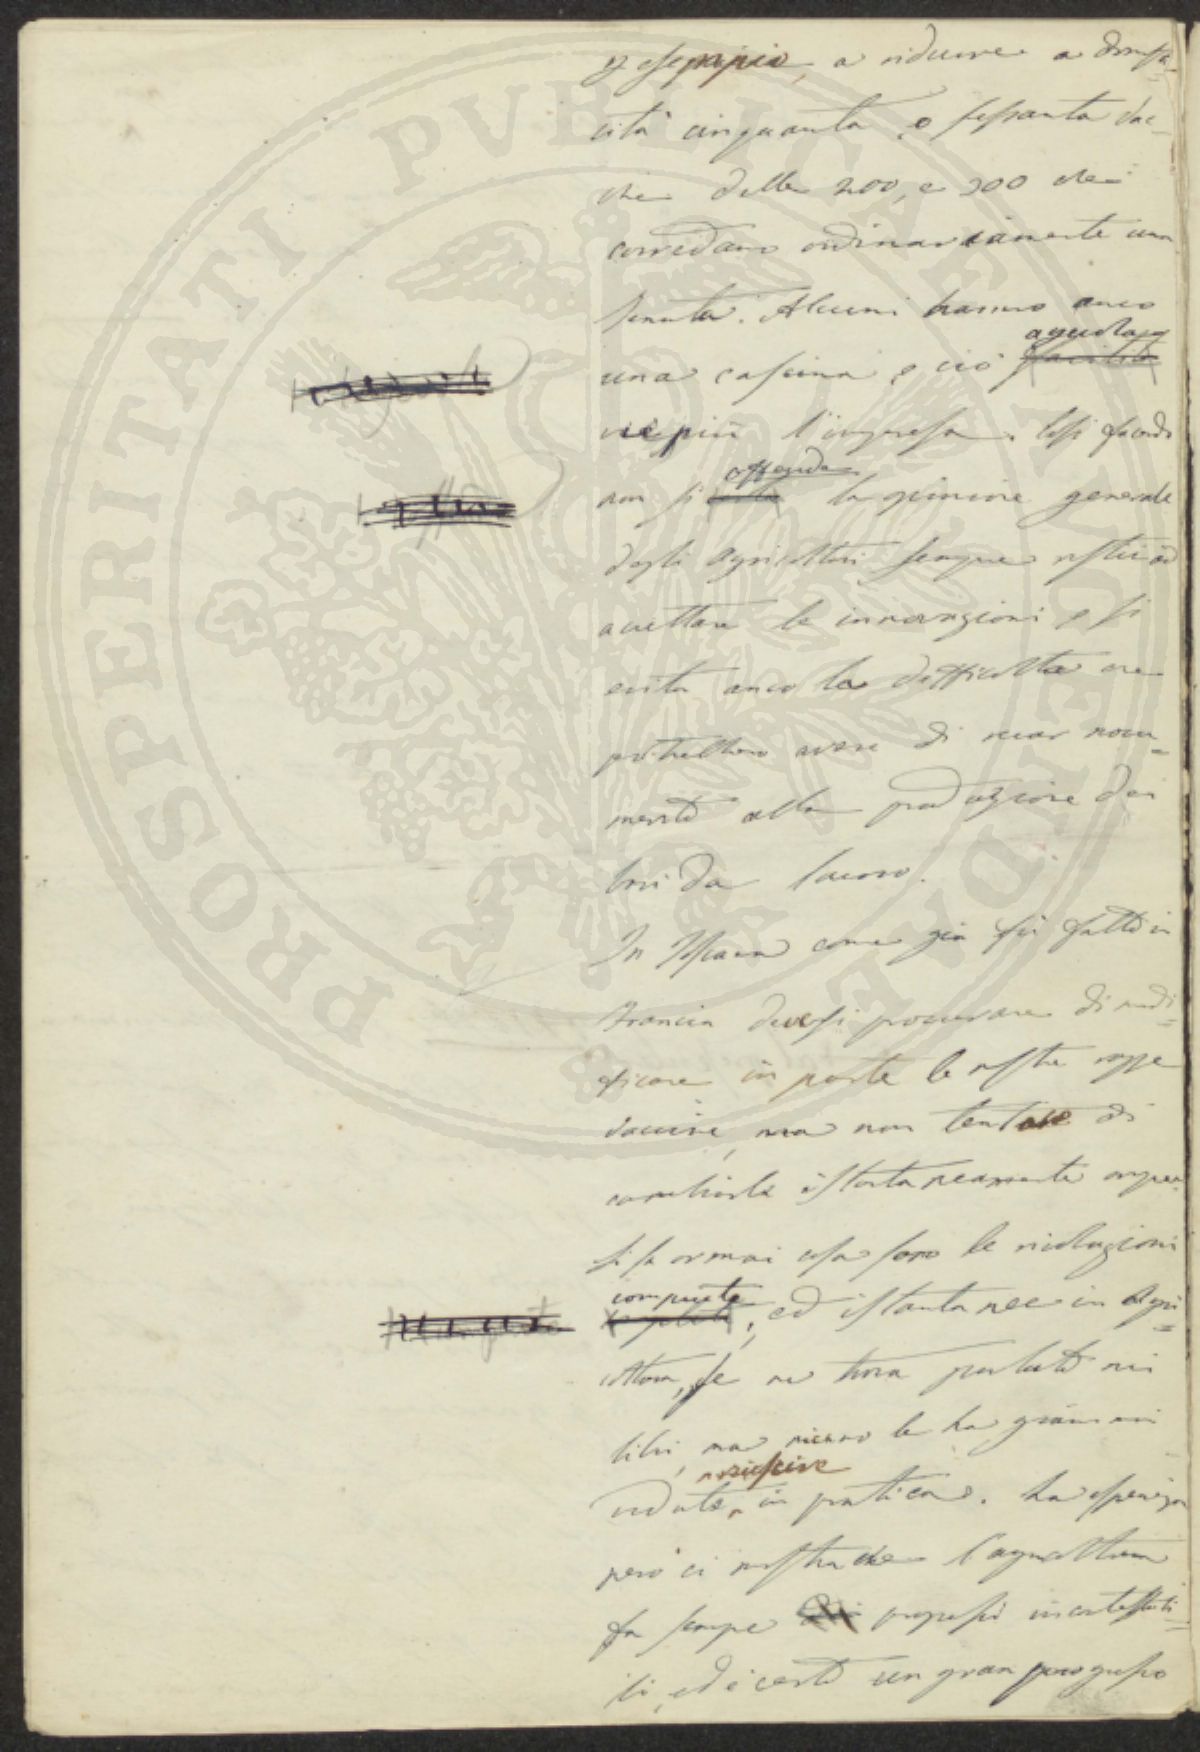 p. esempio, a ridurre a domesti-
cità cinquanta, o sessanta vac-
che delle 200, e 300 che
corredano ordinariamente una
tenuta. Alcuni hanno anco
agevola
una cascina, e ciò facilita
viè più l'impresa. Così facendo
offende
non si la opinione generale
degli agricoltori sempre restii ad
accettare le innovazioni, e si
evita anco la difficoltà che
potrebbero avere di recar nocu-
mento alla produzione dei
bovi da lavoro.
In Toscana come già fu fatto in
Francia devesi procurare di modi-
ficare in parte le nostre razze
vaccine, ma non tentare di
cambiarle istantaneamente
si sa ormai cosa sono le rivoluzioni
compiute
complete, ed istantanee in Agri-
coltura, se ne trova parlato nei
libri, ma niuno le ha giammai
riescire
vedute, in pratica. La esperienza
però ci mostra che l'agricoltura
fa sempre dei progressi incontestabi-
li, ed è certo un gran progresso
PROSPERITATI PVBLICAE AVGENDAE